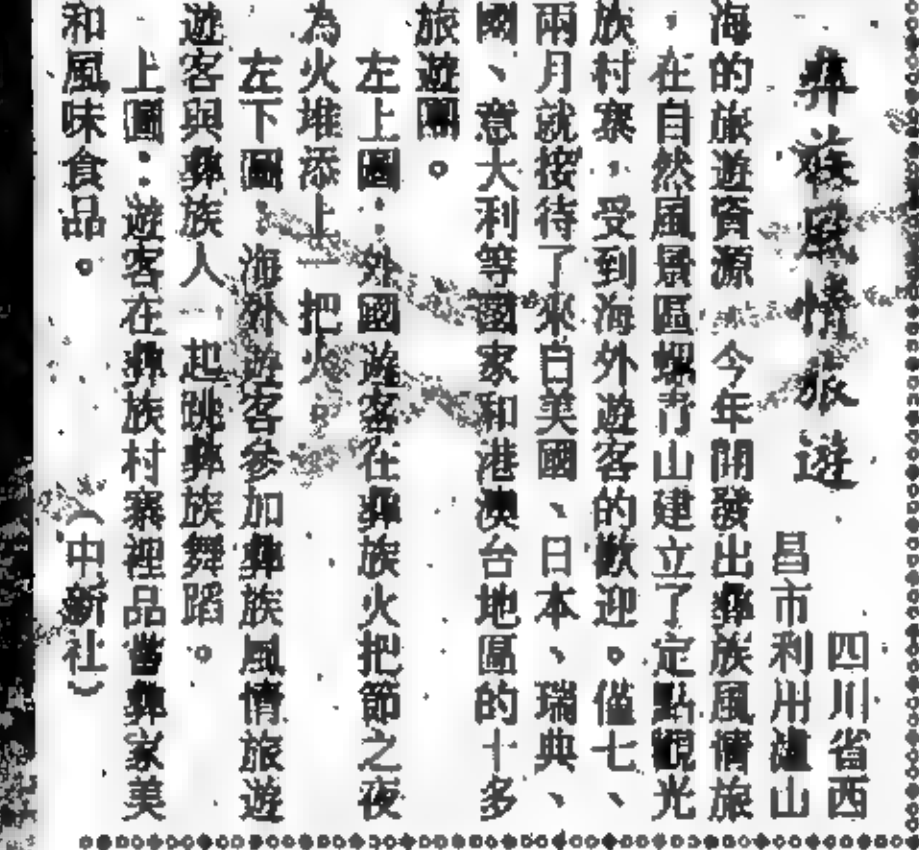 彝族風情旅遊
四川省西
昌市利用瀘山
海的旅遊資源 今年開發出彝族風情旅
，在自然風景區螺青山建立了定點觀光
族村寨，受到海外遊客的歡迎。僅七、
兩月就接待了來自美國、日本、瑞典、
國、意大利等國家和港澳台地區的十多
旅遊團。
左上圖：外國遊客在彝族火把節之夜
為火堆添上一把火。
左下圖：海外遊客參加彝族風情旅遊
遊客與彝族人一起跳彝族舞蹈。
上圖：遊客在彝族村寨裡品嘗彝家美
和風味食品。
（中新社）